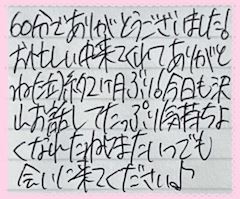 60分でありがとうございました!
お忙しい中来てくれてありがと
ね(泣)約2ヶ月ぶり!!今日も沢
山お話ししてたっぷり気持ちよ
くなれたねまたいつでも
会いに来てくださいね♪